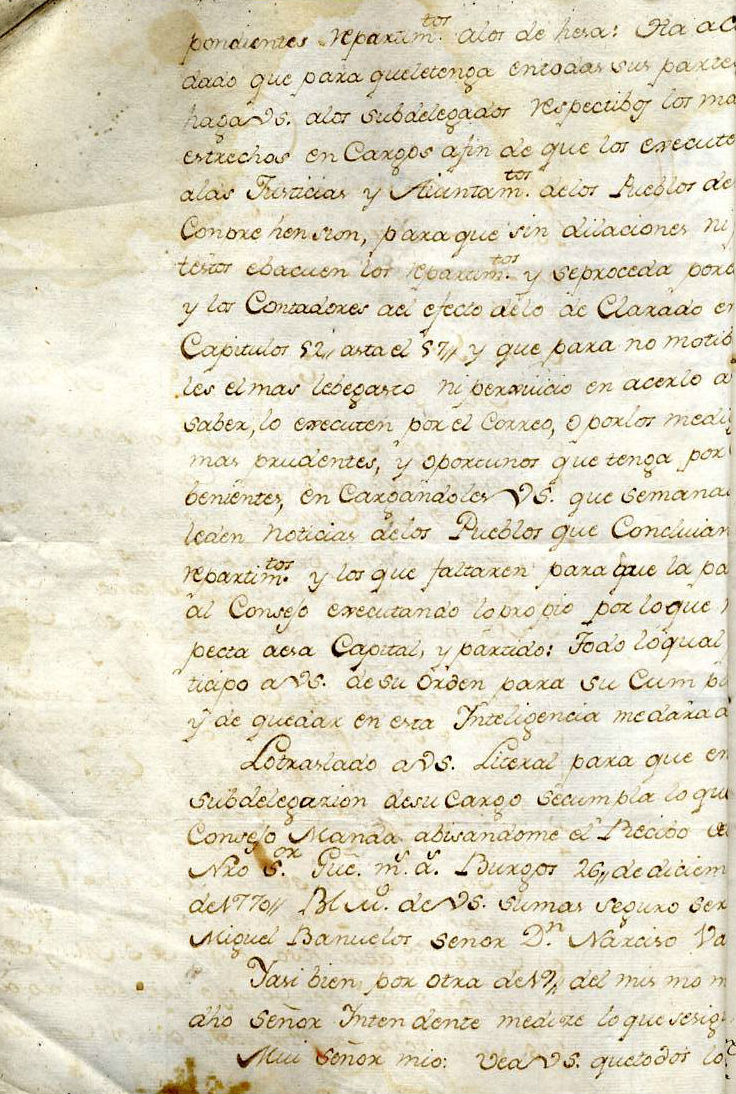 pondientes repartim.tos alos de hesa: Ha ac
dado que para queletenga entodas sus parte
haga VS. alos subdelegados respectibos los ma
estrechos en Cargos afin de que los execute
alas Justicias y Aiuntam.tos delos Pueblos de
Conprehension, para que sin dilaciones ni
testos ebacuen los repartim.tos y seproceda por
y los Contadores ael efecto delo de Clarado en
Capitulos 52,, asta el 57,, y que para no motib
les elmas lebegasto ni perxuicio en acerlo a
saber, lo executen por el Correo, o porlos medi
mas prudentes, y oportunos que tenga por
benientes, en Cargandoles VS. que semana
leden noticias delos Pueblos que Concluian
repartim.tos y los que faltaren para que la pa
al Consejo executando lo propio por loque
pecta aesa Capital, y partido: Todo loqual
ticipo a VS. de su orden para su Cumpli
y de quedar en esta Inteligencia medara a
Lotraslado a VS. Literal para que en
subdelegazion desu cargo secumpla lo que
Consejo Manda abisandome el Recibo
Nro S.or Gue. m.s a.s Burgos 26,, de diciem
de 1770,, Bl M.o de VS. sumas seguro ser
Miguel Bañuelos señor D.n Narciso Va
Yasi bien por otra de 19,, del mismo m
año señor Intendente medize lo que sesig
Mui señor mio: vea VS. quetodos lo